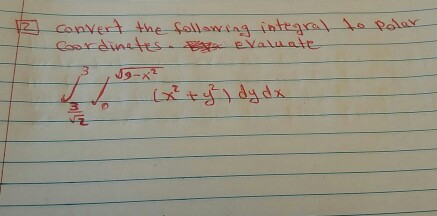 2 convert the following integral to polar
Coordinates. Evaluate
∫_{3/√2}^{3} ∫_{0}^{√9-x²} (x² + y²) dy dx